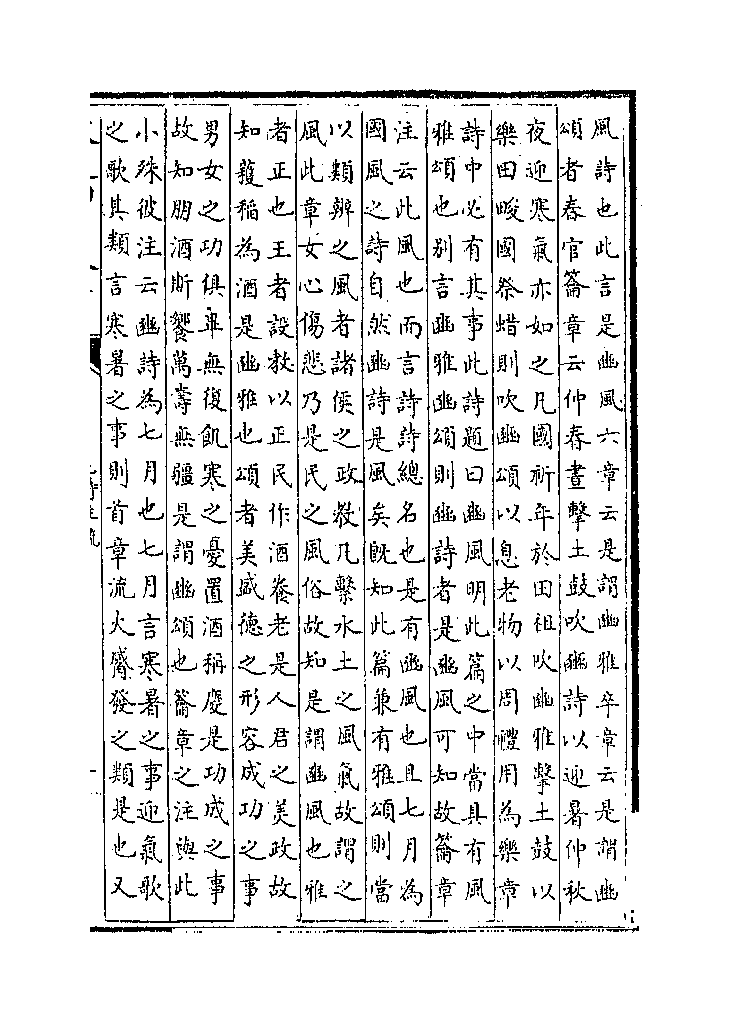 風詩也此言是豳風六章云是謂豳雅卒章云是謂豳
頌者春官籥章云仲春晝擊土鼓吹豳詩以迎暑仲秋
夜迎寒氣亦如之凡國祈年於田祖吹豳雅擊土鼓以
樂田畯國祭蜡則吹豳頌以息老物以周禮用為樂章
詩中必有其事此詩題曰豳風明此篇之中當具有風
雅頌也别言豳雅豳頌則豳詩者是豳風可知故籥章
注云此風也而言詩詩總名也是有豳風也且七月為
國風之詩自然豳詩是風矣既知此篇兼有雅頌則當
以類辨之風者諸侯之政教凡繫水土之風氣故謂之
風此章女心傷悲乃是民之風俗故知是謂豳風也雅
者正也王者設教以正民作酒養老是人君之美政故
知穫稲為酒是豳雅也頌者美盛德之形容成功之事
男女之功俱畢無復飢寒之憂置酒稱慶是功成之事
故知朋酒斯饗萬壽無疆是謂豳頌也籥章之注與此
小殊彼注云豳詩為七月也七月言寒暑之事迎氣歌
之歌其類言寒暑之事則首章流火觱發之類是也又